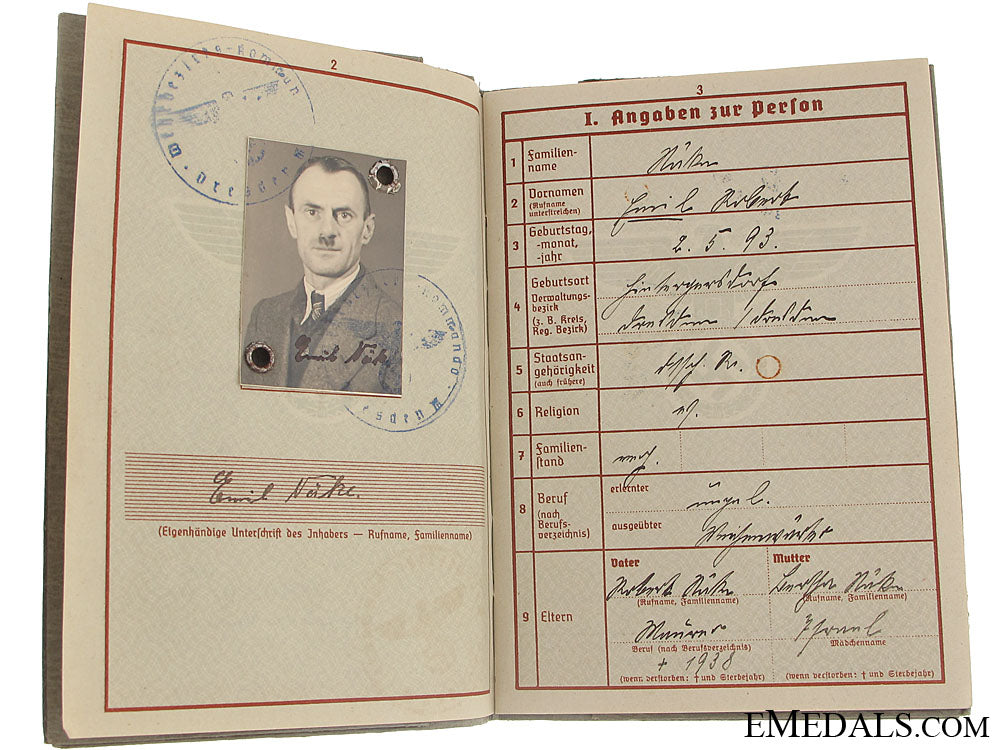 2
Wehrbezirks-Kommando
Dresden
Emil Näke
Kommando
Dresden
Emil Näke.
(Eigenhändige Unterschrift des Inhabers — Rufname, Familienname)
3
I. Angaben zur Person
1 Familien-
name
Näke
2 Vornamen
(Rufname
unterstreichen)
Emil Robert
3 Geburtstag,
-monat,
-jahr
2. 5. 93.
4 Geburtsort
Verwaltungs-
bezirk
(z. B. Kreis,
Reg. Bezirk)
Hintergersdorf
Dresden / Dresden
5 Staatsan-
gehörigkeit
(auch frühere)
dtsch. R.
6 Religion
ev.
7 Familien-
stand
verh.
8 Beruf
(nach
Berufs-
verzeichnis)
erlernter
ungel.
ausgeübter
Weichenwärter
9 Eltern
Vater
Robert Näke
(Rufname, Familienname)
Maurer
Beruf (nach Berufsverzeichnis)
+ 1938
(wenn verstorben: † und Sterbejahr)
Mutter
Bertha Näke
(Rufname, Familienname)
Mädchenname
(wenn verstorben: † und Sterbejahr)
EMEDALS.COM